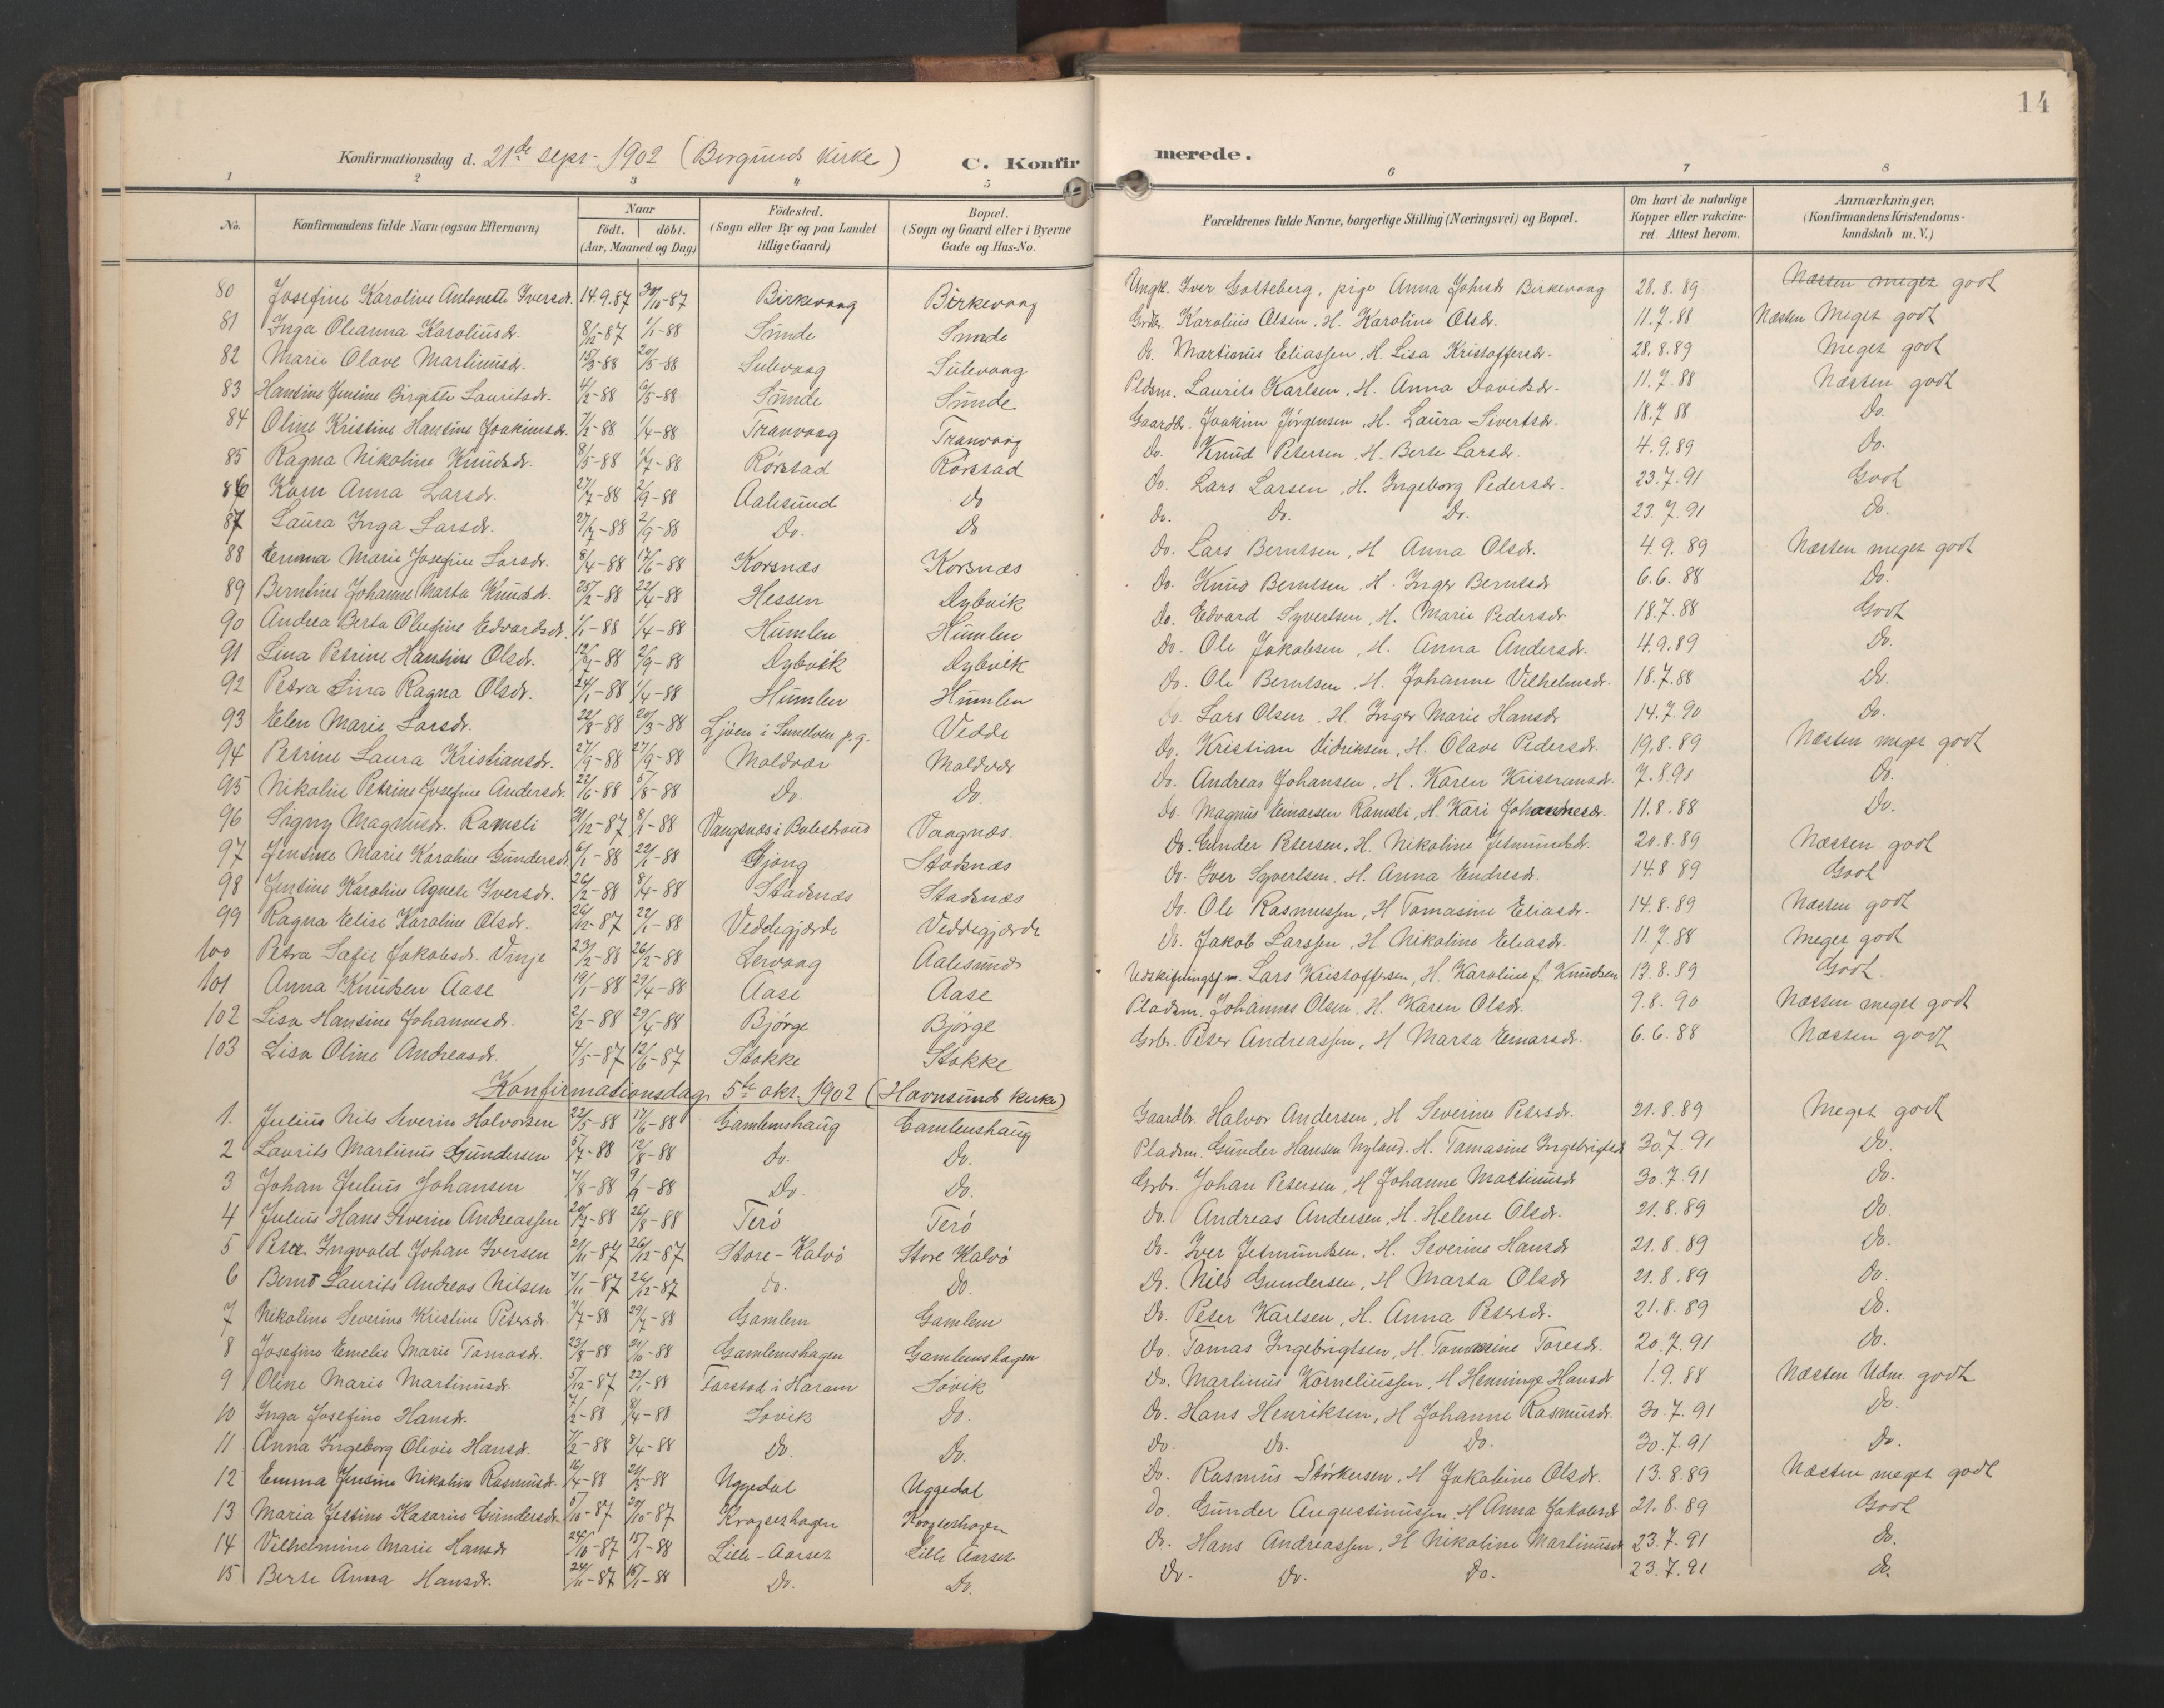 14
Konfirmationsdag d. 21de sept. 1902 (Borgunds kirke) C. Konfirmerede.
1 2 3 4 5 6 7 8
No. Konfirmandens fulde Navn (ogsaa Efternavn) Naar födt. döbt. (Aar, Maaned og Dag) Födested. (Sogn eller By og paa Landet tillige Gaard) Bopæl. (Sogn og Gaard eller i Byerne Gade og Hus-No. Forældrenes fulde Navne, borgerlige Stilling (Næringsvei) og Bopæl. Om havt de naturlige Kopper eller vakcineret. Attest herom. Anmærkninger. (Konfirmandens Kristendomskundskab m. V.)
80 Josefine Karoline Antonette Iversdr. 14.9.87 30/10-87 Birkevaag Birkevaag Ungk. Iver Gotteberg, pige Anna Johnsdr Birkevaag 28.8.89 Næsten meget godt
81 Inga Oleanna Karoliusdr. 8/12-87 1/1-88 Sunde Sunde Grdbr. Karolius Olsen, H. Karoline Olsdr. 11.7.88 Næsten Meget godt
82 Marie Olave Martinusdr. 15/3-88 20/5-88 Sulevaag Sulevaag Do. Martinus Eliassen, H. Lisa Kristoffersdr. 28.8.89 Meget godt
83 Hansine Jensine Birgitte Lauritsdr. 4/2-88 6/5-88 Sunde Sunde Pldsm. Laurits Karlsen, H. Anna Davidsdr. 11.7.88 Næsten godt
84 Oline Kristine Hansine Joakimsdr. 7/2-88 1/4-88 Tranvaag Tranvaag Gaardbr. Joakim Jörgensen, H. Laura Sivertsdr. 18.7 88 Do.
85 Ragna Nikoline Knudsdr. 8/5-88 1/7-88 Rörstad Rörstad Do. Knud Petersen, H. Berte Larsdr. 4.9.89 Do.
86 Karn Anna Larsdr. 27/7-88 2/9-88 Aalesund Do Do. Lars Larsen, H. Ingeborg Pedersdr. 23.7.91 Godt
87 Laura Inga Larsdr. 27/7-88 2/9-88 Do. Do Do. Do. Do. 23.7.91 Do.
88 Emma Marie Josefine Larsdr. 8/4-88 17/6-88 Korsnæs Korsnæs Do. Lars Berntsen, H Anna Olsdr. 4.9.89 Næsten meget godt
89 Berntine Johanne Marta Knudsd. 25/2-88 22/4-88 Hessen Dybvik Do. Knud Berntsen, H. Inger Berntsdr 6.6.88 Do.
90 Andrea Berta Olufine Edvardsdr. 1/1-88 1/4-88 Humlen Humlen Do. Edvard Syvertsen, H. Marie Pedersdr 18.7.88 Godt
91 Lina Petrine Hansine Olsdr. 12/7-88 2/9-88 Dybvik Dybvik Do. Ole Jakobsen, H. Anna Andersdr. 4.9.89 Do.
92 Petra Lina Ragna Olsdr. 24/1-88 1/4-88 Humlen Humlen Do. Ole Berntsen, H. Johanne Vilhelmsdr. 18.7.88 Do.
93 Elen Marie Larsdr. 22/8-88 20/3-88 Ljöen i Sunelven p.g. Vedde Do. Lars Olsen, H. Inger Marie Hansdr 14.7.90 Do.
94 Petrine Laura Kristiansdr. 27/9-88 27/9-88 Moldvær Moldvær Do. Kristian Didriksen, H. Olave Pedersdr. 19.8.89 Næsten meget godt
95 Nikoline Petrine Josefine Andersdr. 22/6-88 5/8-88 Do. Do. Do. Andreas Johansen, H. Karen Kristiansdr. 7.8.91 Do.
96 Signy Magnusdr. Ramsli 31/12-87 8/1-88 Vangsnæs i Balestrand Vaagnæs. Do. Magnus Einarsen Ramsli, H. Kari Johannesdr. 11.8.88 Do.
97 Jensine Marie Karoline Gundersdr 6/1-88 22/1-88 Gjöng Stadsnæs Do. Gunder Petersen, H. Nikoline Jetmundsdr. 20.8.89 Næsten godt
98 Jensine Karoline Agnete Iversdr. 26/2-88 8/4-88 Stadsnæs Stadsnæs Do. Iver Syvertsen, H. Anna Endresdr. 14.8 89 Godt
99 Ragna Elise Karoline Olsdr. 26/12-87 22/1-88 Veddegjærde Veddegjærde Do. Ole Rasmussen, H Tomasine Eliasdr. 14.8.89 Næsten godt
100 Petra Sofie Jakobsdr. Vinje 23/2-88 26/2-88 Lervaag Aalesund Do. Jakob Larssen, H. Nikoline Eliasdr. 11.7.88 Meget godt
101 Anna Knudsen Aase 19/1-88 29/4-88 Aase Aase Udskiftningsfm. Lars Kristoffersen, H. Karoline f. Knudsen 13.8.89 Godt.
102 Lisa Hansine Johannesdr. 2/2-88 29/4-88 Bjørge Bjørge Pladsm. Johannes Olsen, H. Karen Olsdr. 9.8.90 Næsten meget godt
103 Lisa Oline Andreasdr. 4/5-87 12/6-87 Stokke Stokke Grbr. Peter Andreassen, H Marta Einarsdr. 6.6.88 Næsten godt
Konfirmationsdag 5te okt. 1902 (Havnsunds kirke)
1. Julius Nils Severin Halvorsen 22/5-88 17/6-88 Gamlemshaug Gamlemshaug Gaardbr. Halvor Andersen, H Severine Petersdr. 21.8.89 Meget godt
2 Laurits Martinus Gundersen 5/7-88 12/8-88 Do. Do. Pladsm. Gunder Hansen Nyland. H. Tomasine Ingebrigtsd 30.7.91 Do.
3 Johan Julius Johansen 7/8-88 9/9-88 Do. Do. Grbr. Johan Petersen, H Johanne Martinusdr 30.7.91 Do.
4 Julius Hans Severin Andreassen 20/7-88 26/8-88 Terö Terö Do. Andreas Andersen, H. Helene Olsdr. 21.8.89 Do.
5 Peter Ingvald Johan Iversen 21/11-87 26/12-87 Store-Kalvö Store Kalvö Do. Iver Jetmundsen, H. Severine Hansdr 21.8.89 Do.
6 Bernt Laurits Andreas Nilsen 7/11-87 26/12-87 Do. Do. Do. Nils Gundersen, H Marta Olsdr 21.8.89 Do.
7 Nikoline Severine Kristine Petersdr. 7/7-88 29/7-88 Gamlem Gamlem Do. Peter Karlsen, H. Anna Petersdr. 21.8.89 Do.
8 Josefine Emelie Marie Tomasdr. 23/8-88 21/10-88 Gamlemshagen Gamlemshagen Do. Tomas Ingebrigtsen, H. Tommine Toresdr. 20.7.91 Do.
9 Oline Marie Martinusdr. 5/12-87 22/1-88 Farstad i Haram Sövik Do. Martinus Korneliussen, H Henninge Hansdr 1.9.88 Næsten Udm. godt
10 Inga Josefine Hansdr. 7/2-88 8/4-88 Sövik Do. Do. Hans Henriksen, H Johanne Rasmusdr. 30.7.91 Do.
11 Anna Ingeborg Olivie Hansdr. 7/2-88 8/4-88 Do. Do. Do. Do. Do. 30.7.91 Do.
12 Emma Jensine Nikoline Rasmusdr. 16/4-88 21/5-88 Uggedal Uggedal Do. Rasmus Störkersen, H Jakobine Olsdr. 13.8.89 Næsten meget godt
13 Maria Jestine Katarine Gundersdr. 5/10-87 20/10-87 Kragsethagen Kragsethagen Do. Gunder Augustinussen, H Anna Jakobsdr 21.8.89 Godt
14 Vilhelmine Marie Hansdr 24/10-87 15/1-88 Lille-Aarset Lille Aarset Do. Hans Andreassen, H Nikoline Martinusdr 23.7.91 Do.
15 Berte Anna Hansdr. 24/11-87 15/1-88 Do. Do. Do. Do. Do. 23.7.91 Do.